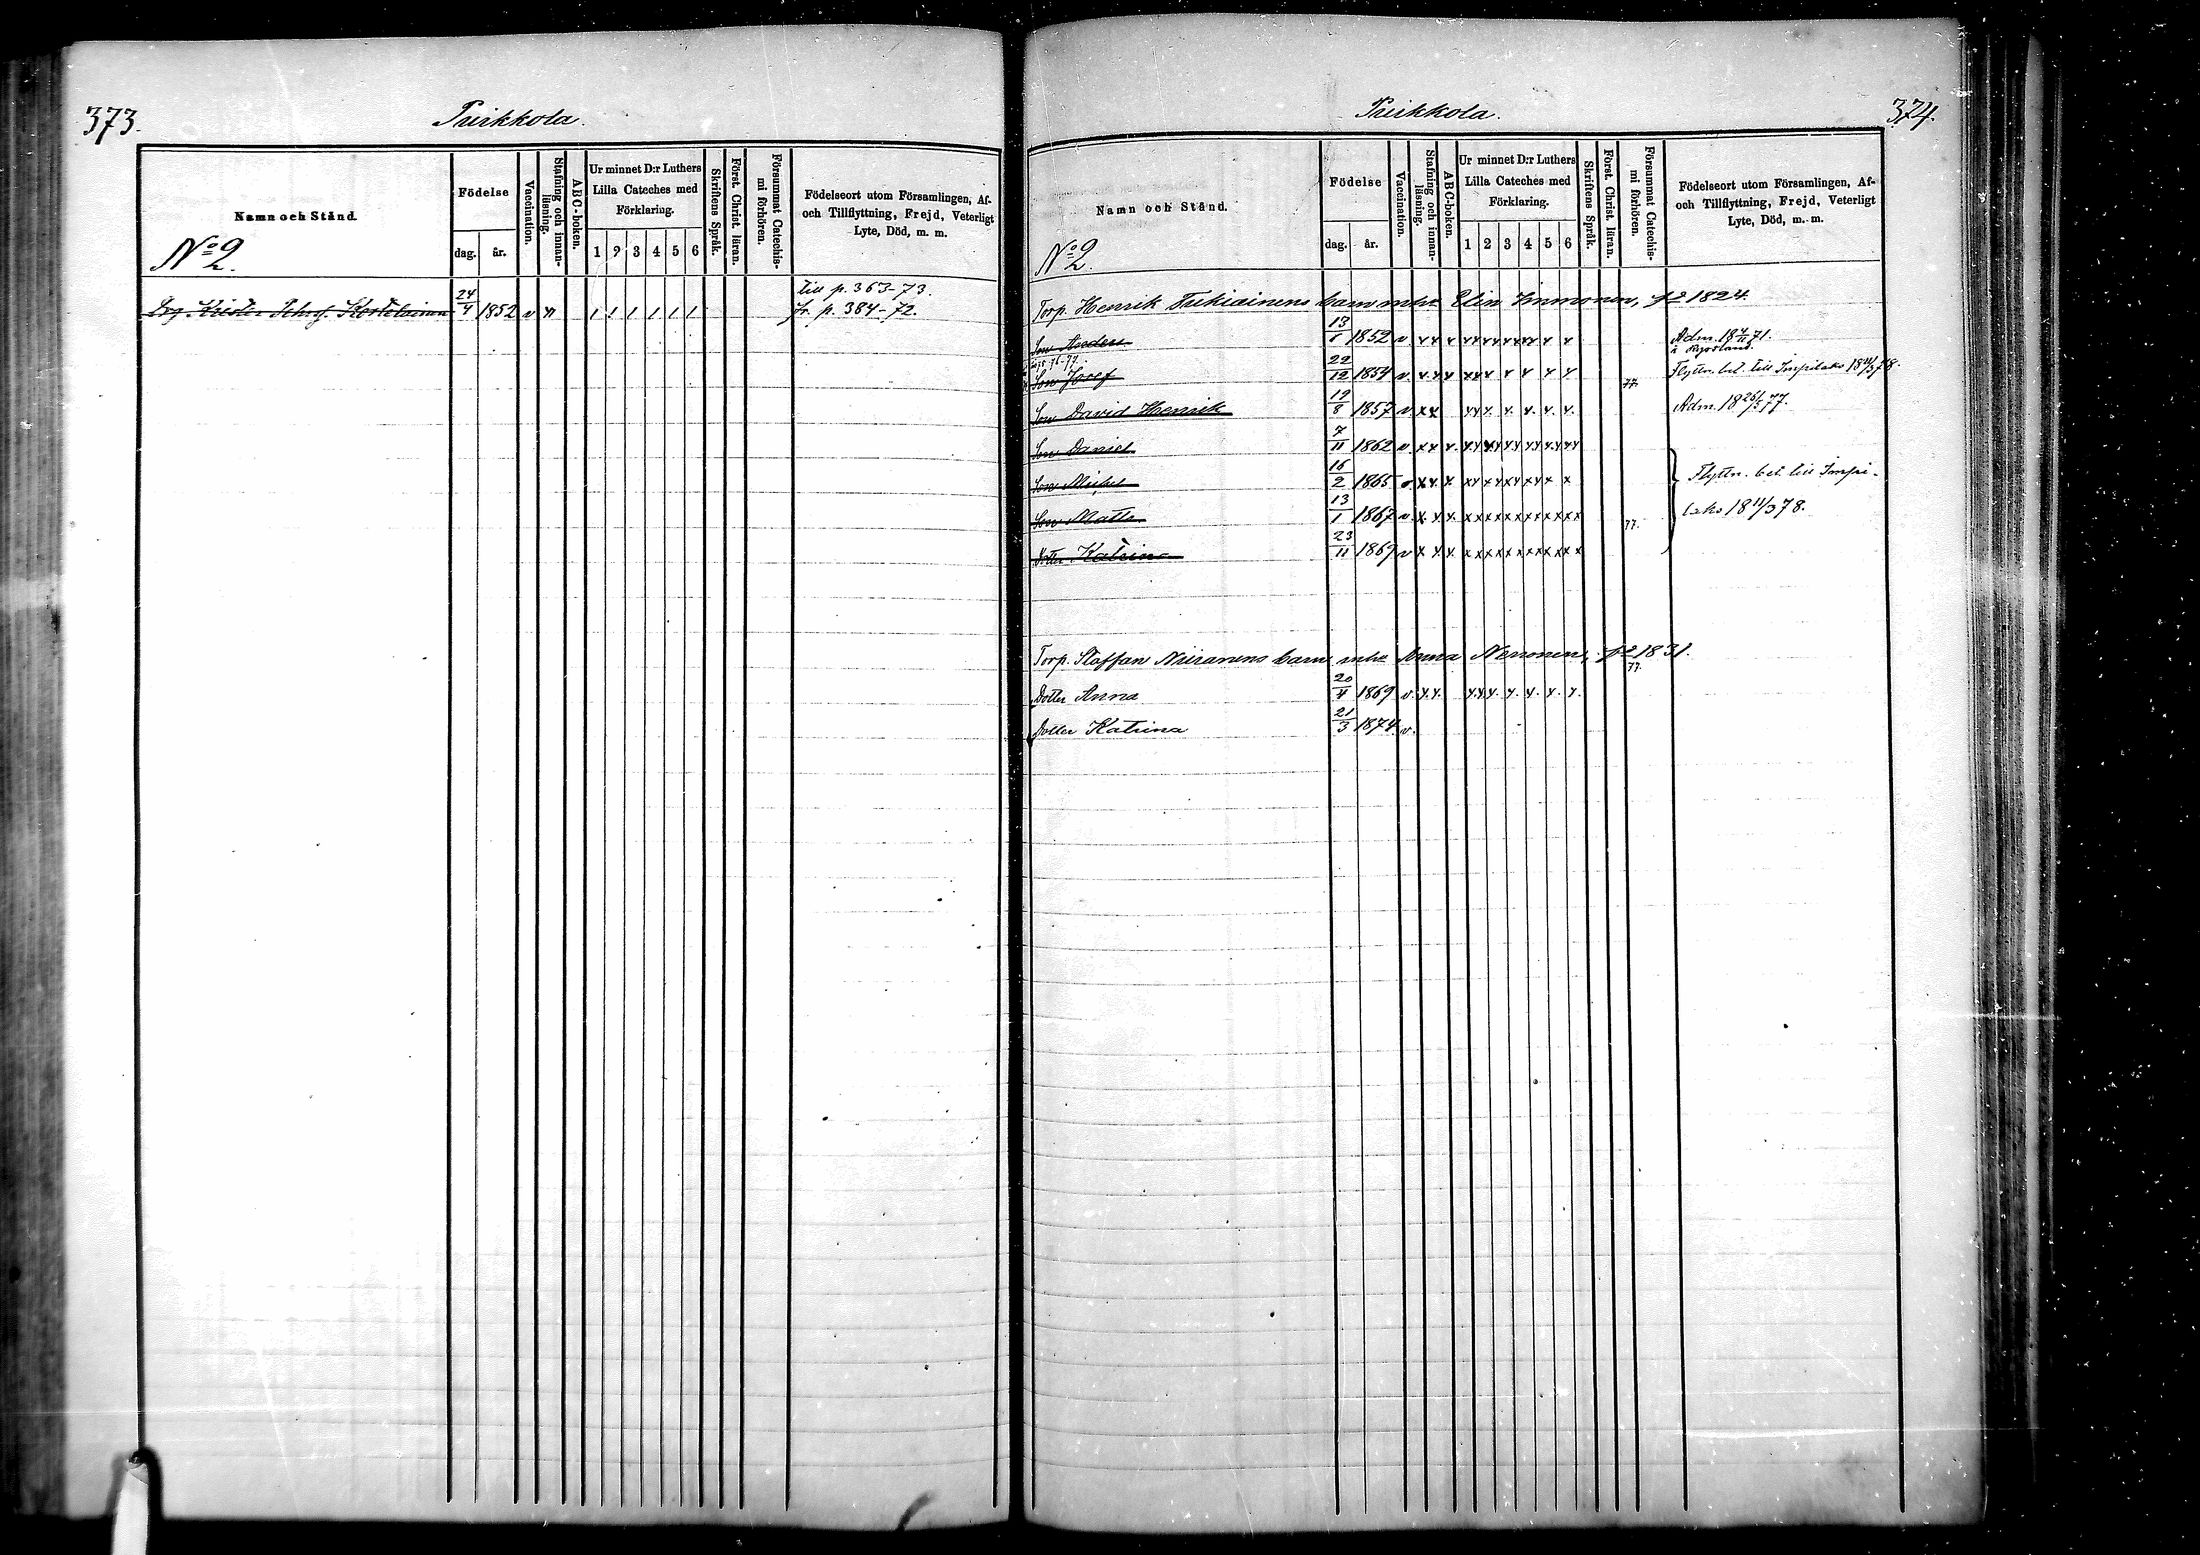 373.
Puikkola.
Namn och Stånd.
Födelse
dag.
år.
Vaccination.
Stafning och innan-
läsning.
ABC-boken.
Ur minnet D:r Luthers
Lilla Cateches med
Förklaring.
1 2 3 4 5 6
Skriftens Språk.
Först. Christ. läran.
Försummat Catechis-
mi förhören.
Födelseort utom Församlingen, Af-
och Tillflyttning, Frejd, Veterligt
Lyte, Död, m. m.
No 2.
till p. 363-73.
24/4 1852 v fr. p. 384-72.
374.
Puikkola.
Namn och Stånd.
Födelse
dag.
år.
Vaccination.
Stafning och innan-
läsning.
ABC-boken.
Ur minnet D:r Luthers
Lilla Cateches med
Förklaring.
1 2 3 4 5 6
Skriftens Språk.
Forst. Christ. läran.
Försummat Catechis-
mi förhören.
Födelseort utom Församlingen, Af-
och Tillflyttning, Frejd, Veterligt
Lyte, Död, m. m.
No 2.
Torp. Henrik Tukiainens barn mhu Elin Immonen, f 1824.
Son Anders 13/1 1852 v Adm. 18 71.
i Ryssland.
Son Josef 22/12 1854 v 77. Flyttn. bet. till Impilaks 18 11/3 78.
Son David Henrik 19/8 1857 v Adm. 18 26/5 77.
Son Daniel 7/11 1862 v
Son Michel 16/2 1865 Flyttn. bet. till Impi-
Son Matts 13/1 1867 v 77. laks 18 11/3 78.
Dotter Katrina 23/11 1869 v
Torp. Staffan Niiranens barn mhu Anna Neuvonen, f 1831.
77.
Dotter Anna 20/4 1869 v
Dotter Katrina 21/3 1874 v.